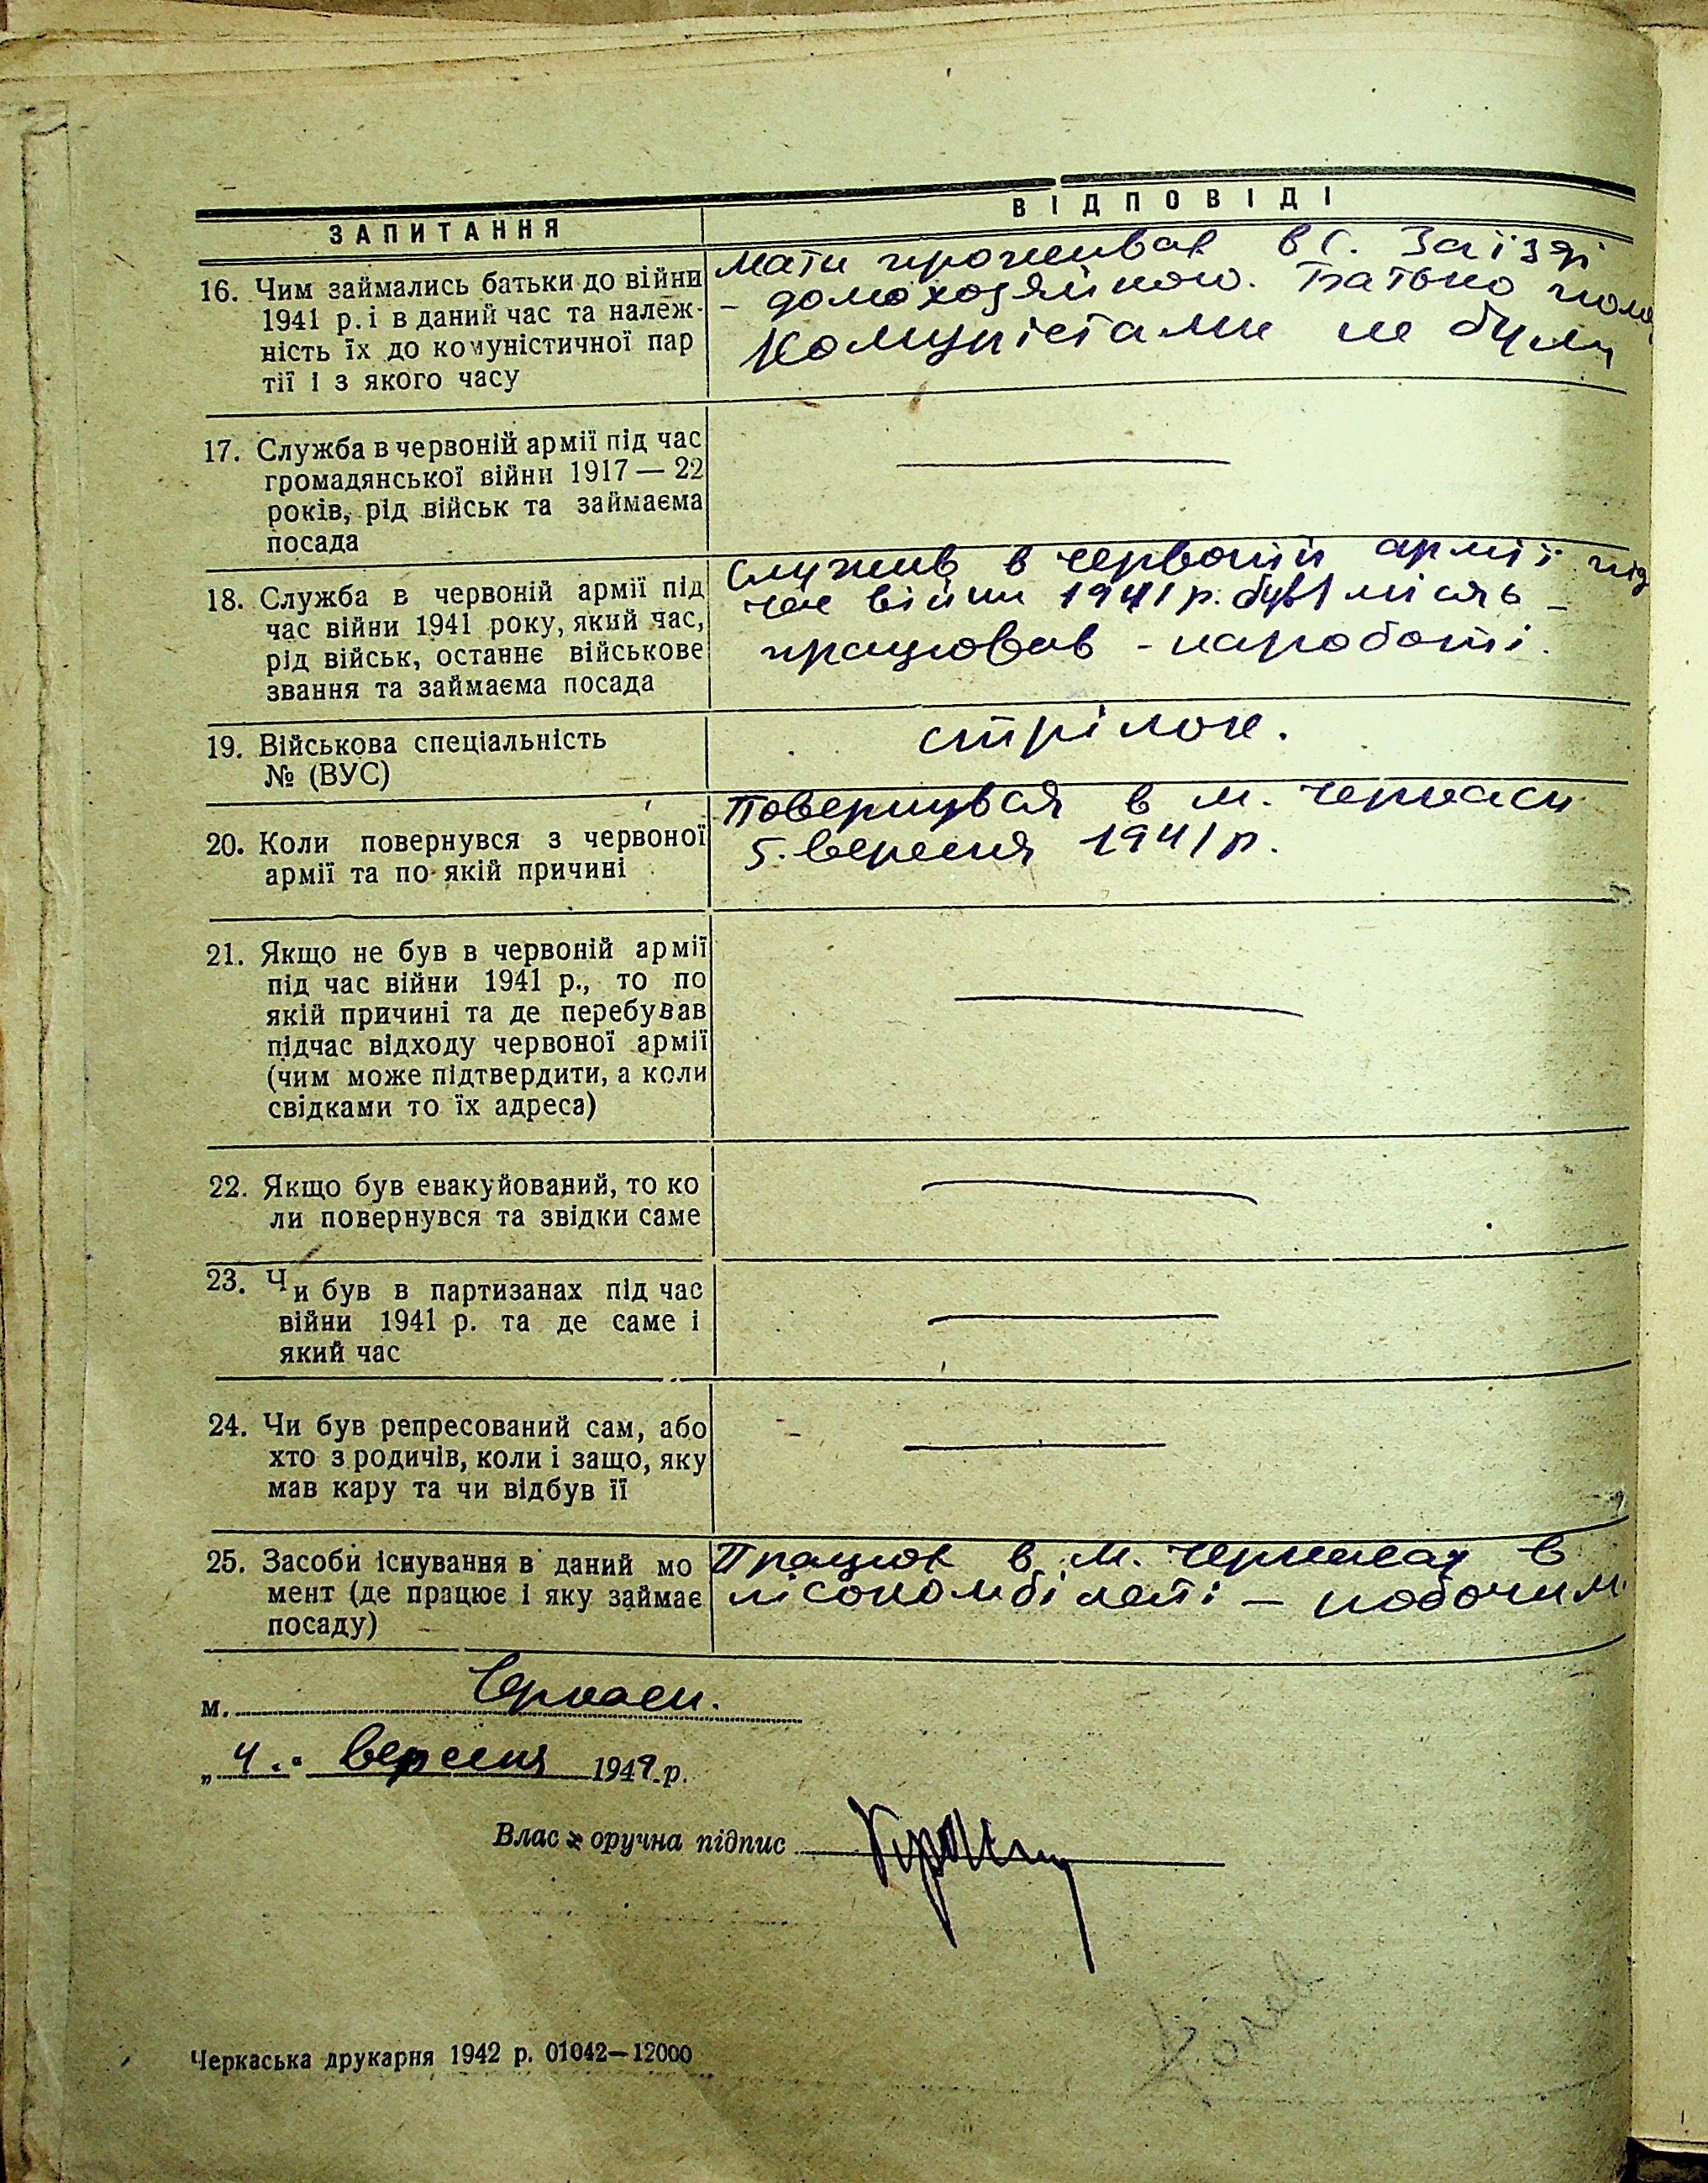 ЗАПИТАННЯ
ВІДПОВІДІ
16. Чим займались батьки до війни
1941 р. і в даний час та належ-
ність їх до комуністичної пар
тії і з якого часу
Мати проживає в с. Заїзді
- домохозяйкою. Батько
Комуністами не були
17. Служба в червоній армії під час
громадянської війни 1917 — 22
років, рід військ та займаєма
посада
18. Служба в червоній армії під
час війни 1941 року, який час,
рід військ, останнє військове
звання та займаєма посада
Служив в червоній армії під
час війни 1941 р. був 1 місяць -
працював - на роботі.
19. Військова спеціальність
№ (ВУС)
стрілок.
20. Коли повернувся з червоної
армії та по якій причині
Повернувся в м. Черкаси
5. вересня 1941 р.
21. Якщо не був в червоній армії
під час війни 1941 р., то по
якій причині та де перебував
підчас відходу червоної армії
(чим може підтвердити, а коли
свідками то їх адреса)
22. Якщо був евакуйований, то ко
ли повернувся та звідки саме
23. Чи був в партизанах під час
війни 1941 р. та де саме і
який час
24. Чи був репресований сам, або
хто з родичів, коли і защо, яку
мав кару та чи відбув її
25. Засоби існування в даний мо
мент (де працює і яку займає
посаду)
Працює в м. Черкасах в
- робочим.
м. Черкаси.
„ 4 . вересня 194 р.
Влас оручна підпис
Черкаська друкарня 1942 р. 01042—12000